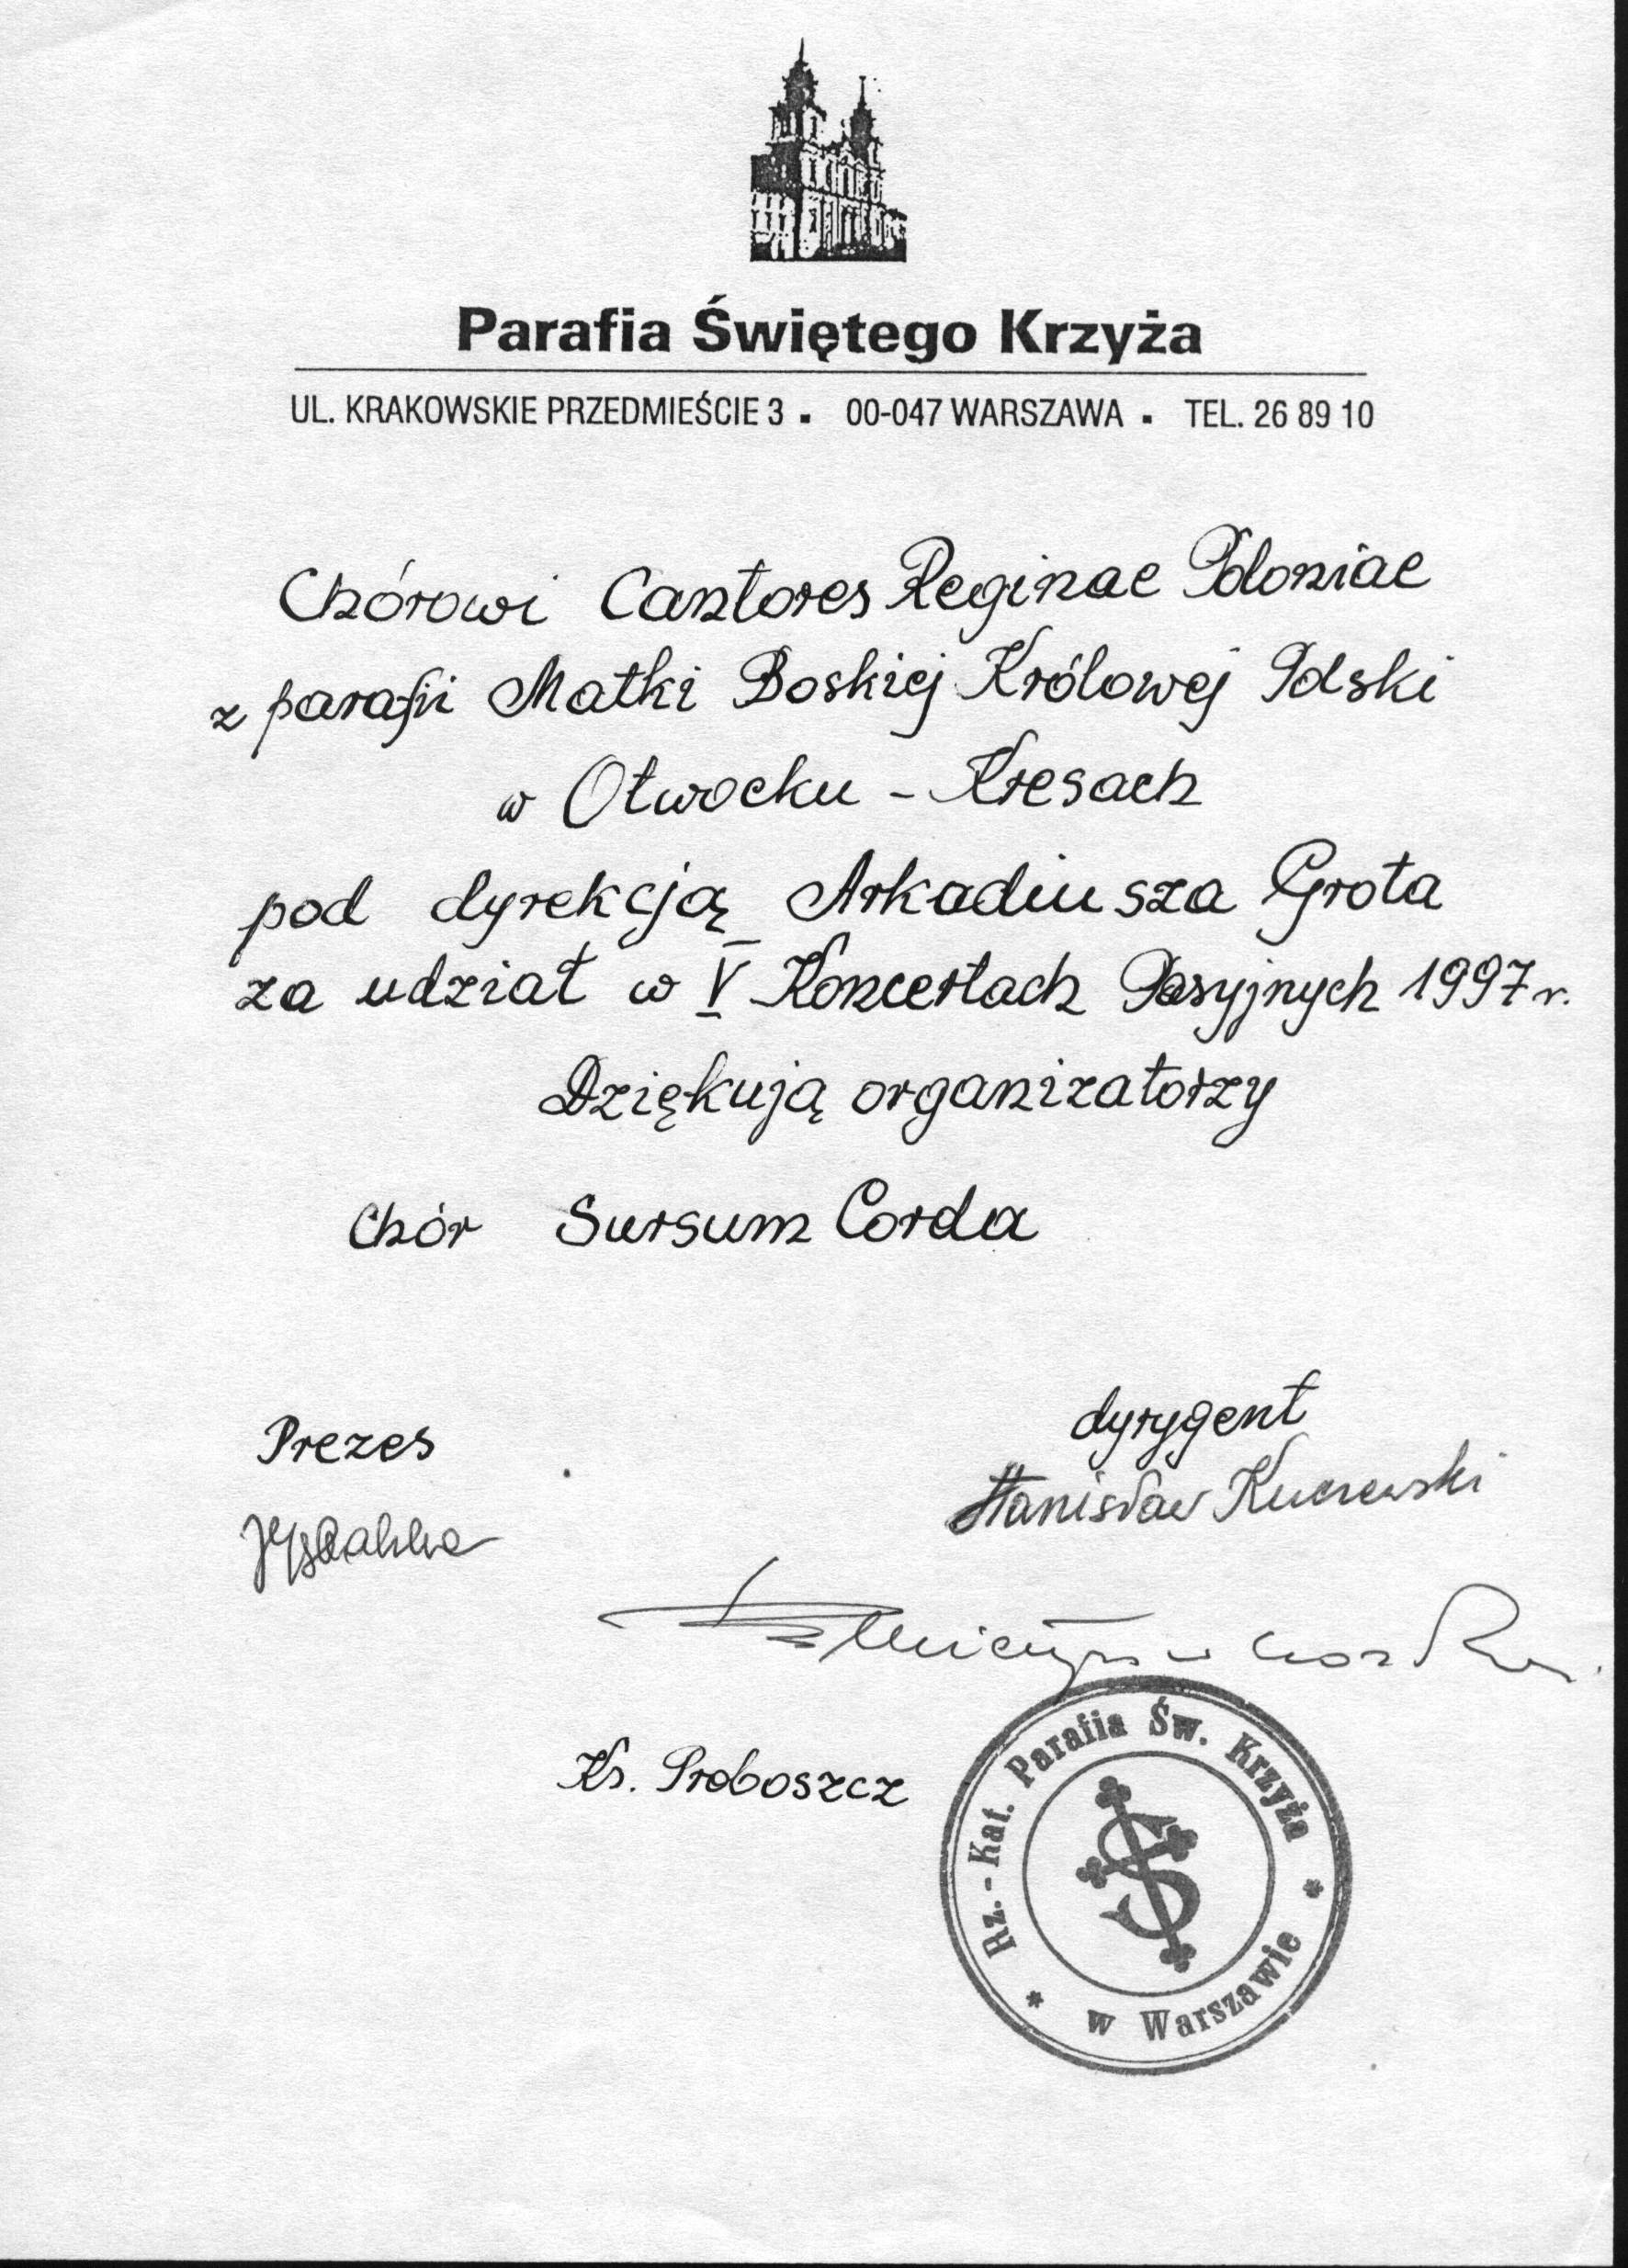 Parafia Świętego Krzyża
UL. KRAKOWSKIE PRZEDMIEŚCIE 3 ▪ 00-047 WARSZAWA ▪ TEL. 26 89 10
Chórowi Cantores Reginae Poloniae
z parafii Matki Boskiej Królowej Polski
w Otwocku - Kresach
pod dyrekcją Arkadiusza Grota
za udział w V Koncertach Pasyjnych 1997 r.
Dziękują organizatorzy
Chór Sursum Corda
Prezes
dyrygent
Stanisław
Ks. Proboszcz
Rz.-Kat. Parafia Św. Krzyża
* w Warszawie *